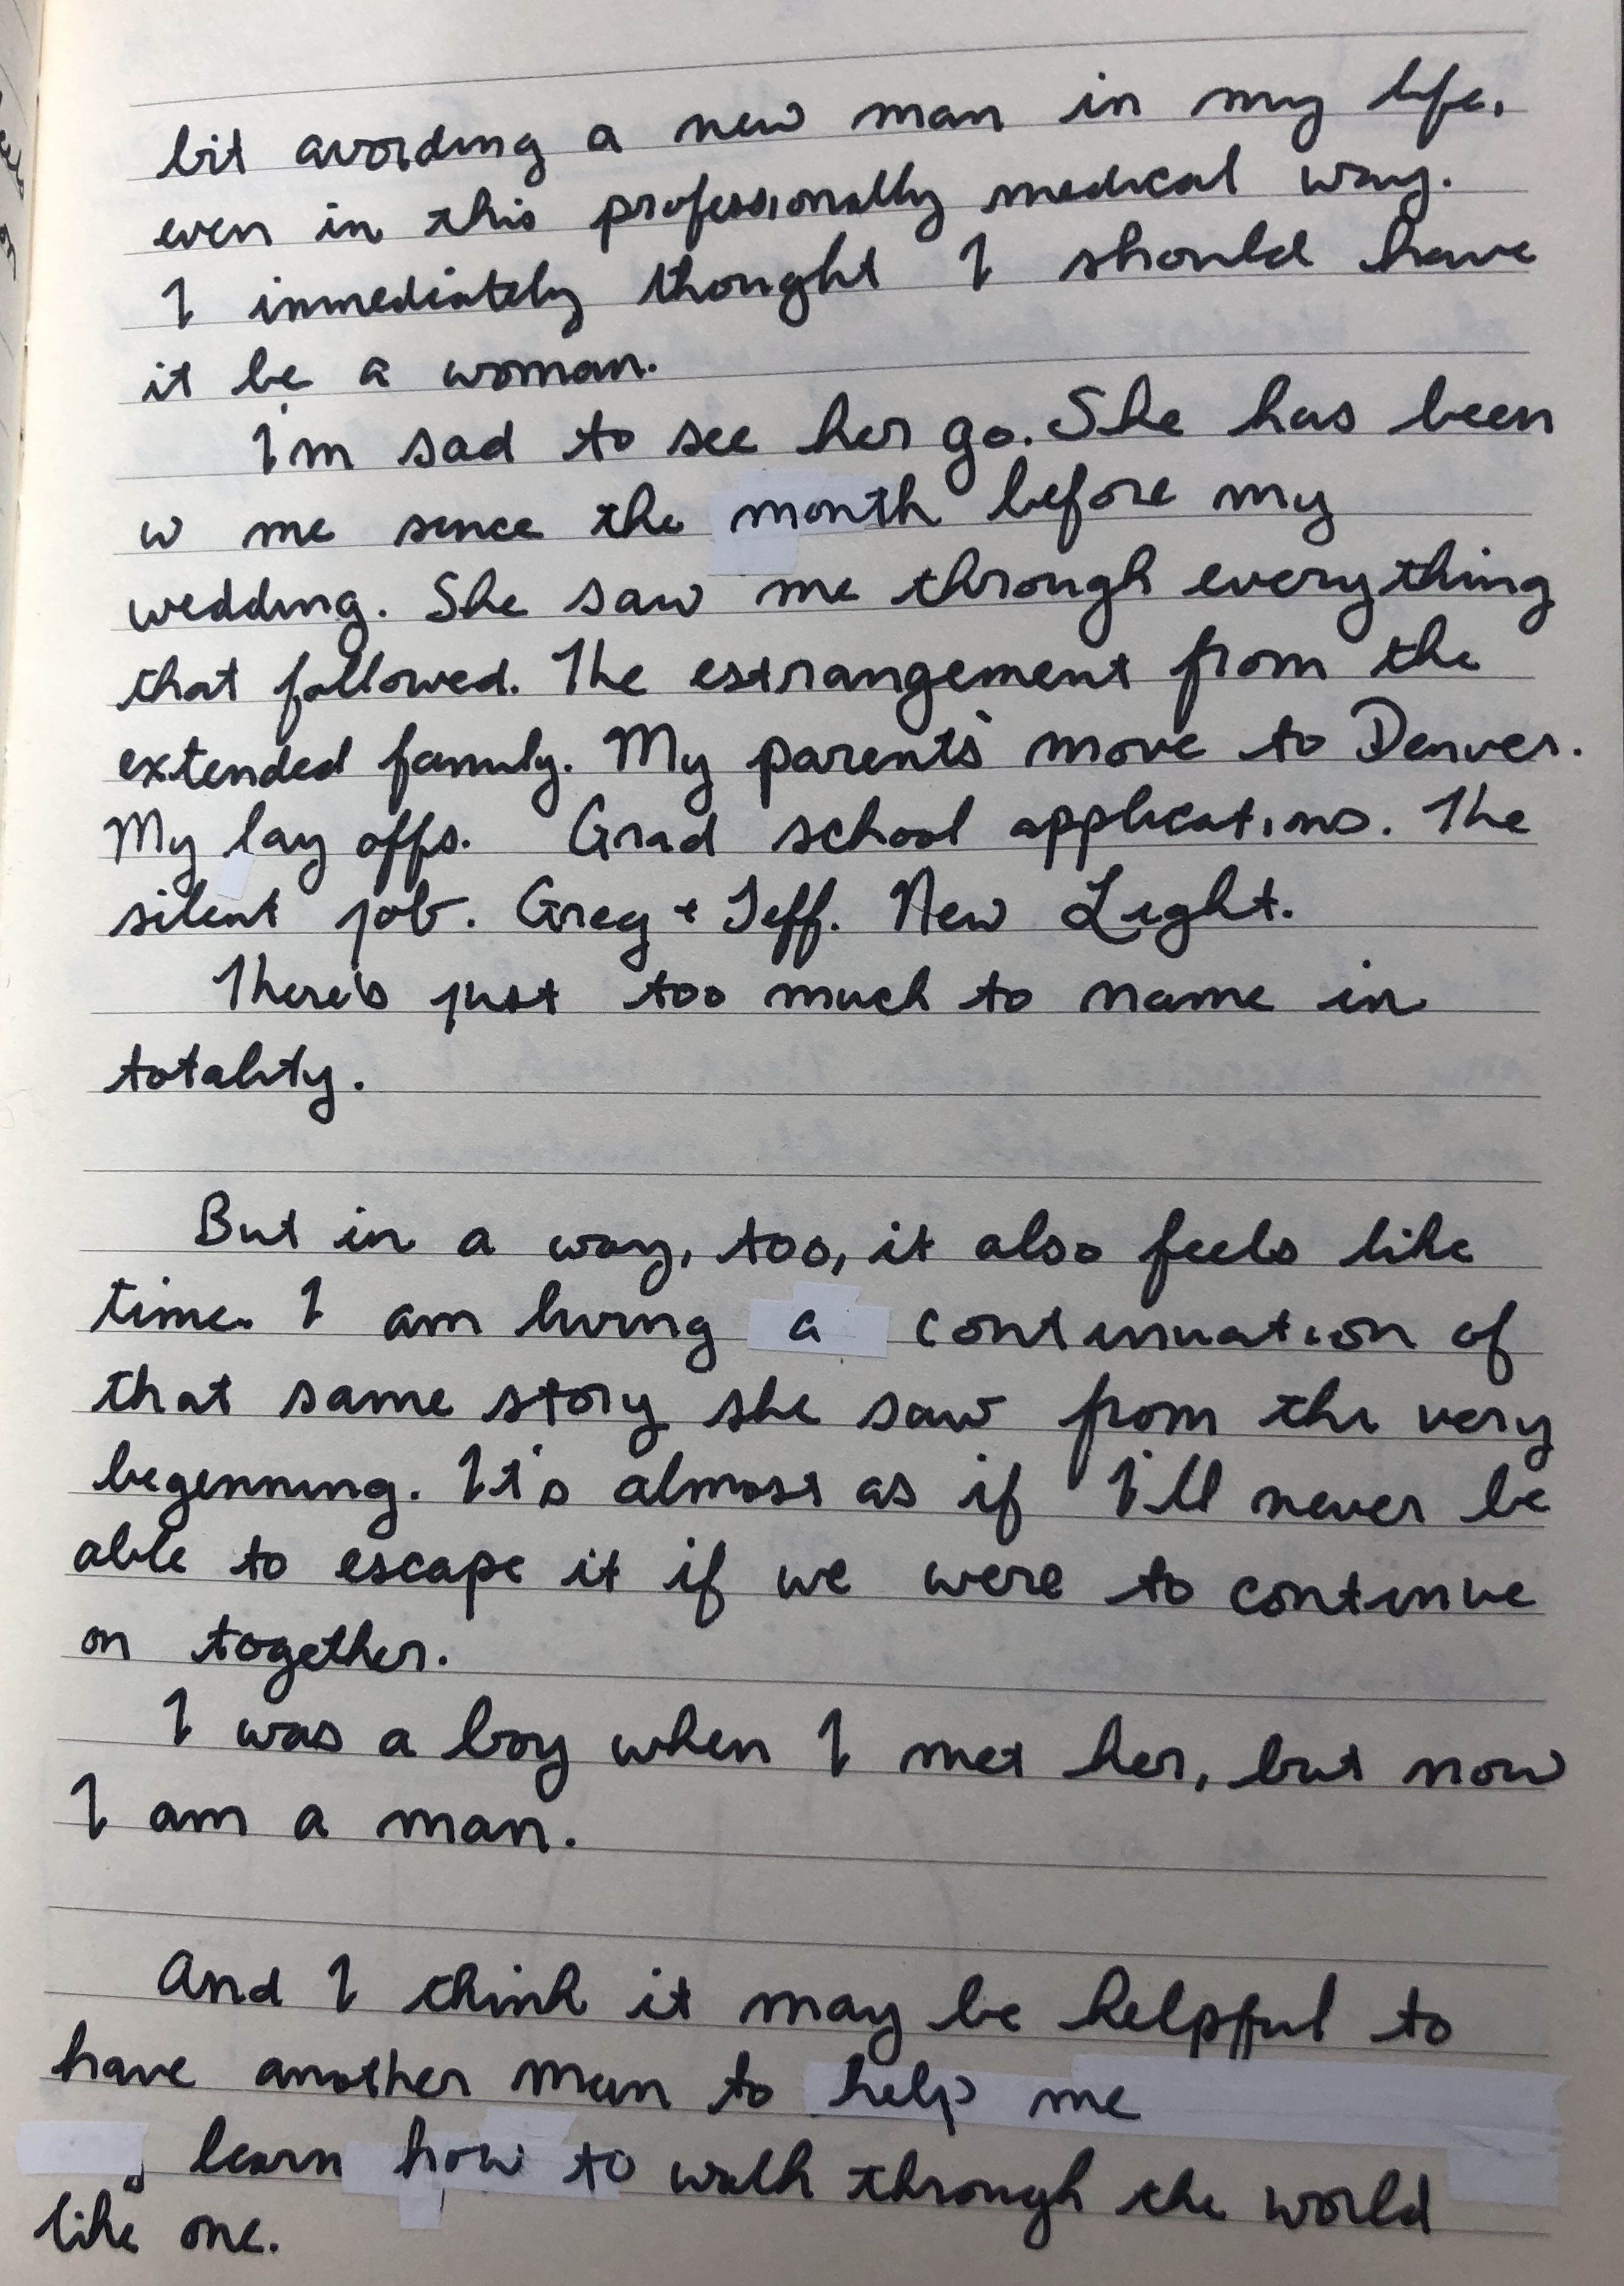 bit avoiding a new man in my life,
even in this professionally medical way.
I immediately thought I should have
it be a woman.
I'm sad to see her go. She has been
w me since the month before my
wedding. She saw me through everything
that followed. The estrangement from the
extended family. My parents' move to Denver.
My lay offs. Grad school applications. The
silent job. Greg + Jeff. New Light.
There's just too much to name in
totality.
But in a way, too, it also feels like
time. I am living a continuation of
that same story she saw from the very
beginning. It's almost as if I'll never be
able to escape it if we were to continue
on together.
I was a boy when I met her, but now
I am a man.
And I think it may be helpful to
have another man to help me
learn how to walk through the world
like one.